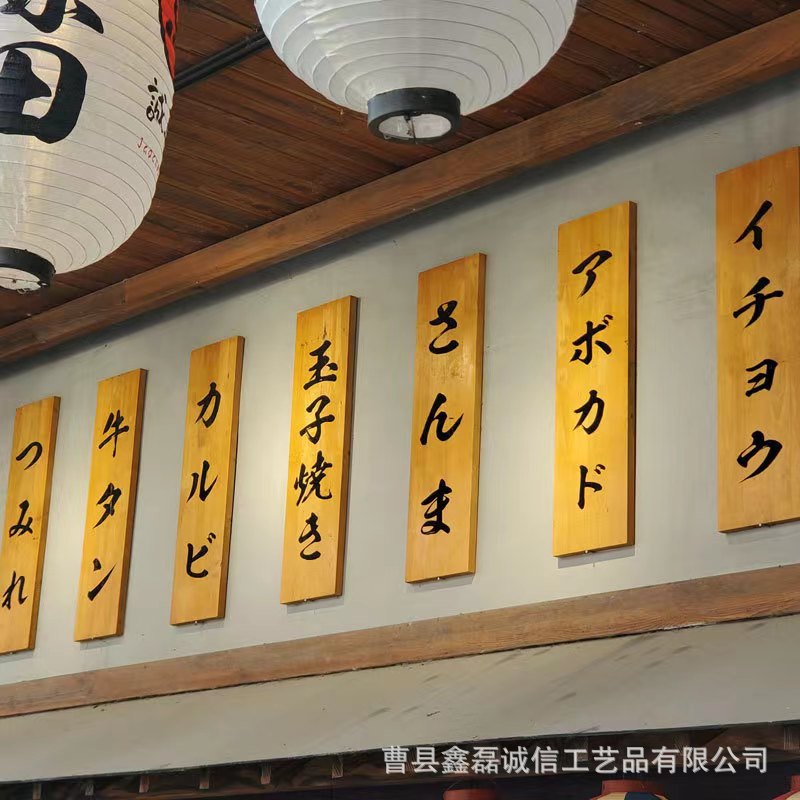 田
誠
イチョウ
アボカド
さんま
玉子焼き
カルビ
牛タン
つみれ
曹县鑫磊诚信工艺品有限公司